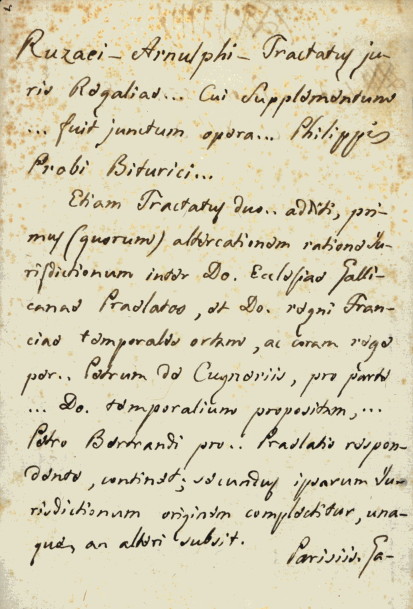 Ruzaei - Arnulphi - Tractatus ju-
ris Regaliae... Cui Supplementum
... fuit junctum opera... Philippi
Probi Biturici...
Etiam Tractatus duo.. additi, pri-
mus (quorum) altercationem ratione Ju-
risdictionum inter Do. Ecclesiae Galli-
canae Praelatos, et Do. regni Fran-
ciae temporales ortam, ac coram rege
per.. Petrum de Cugneriis, pro parte
... Do. temporalium propositam,...
Petro Bertrandi pro.. Praelatis respon-
dente, continet; secundus ipsarum Ju-
risdictionum originem complectitur, una-
que, an alteri subsit.
Parisiis. Ga-